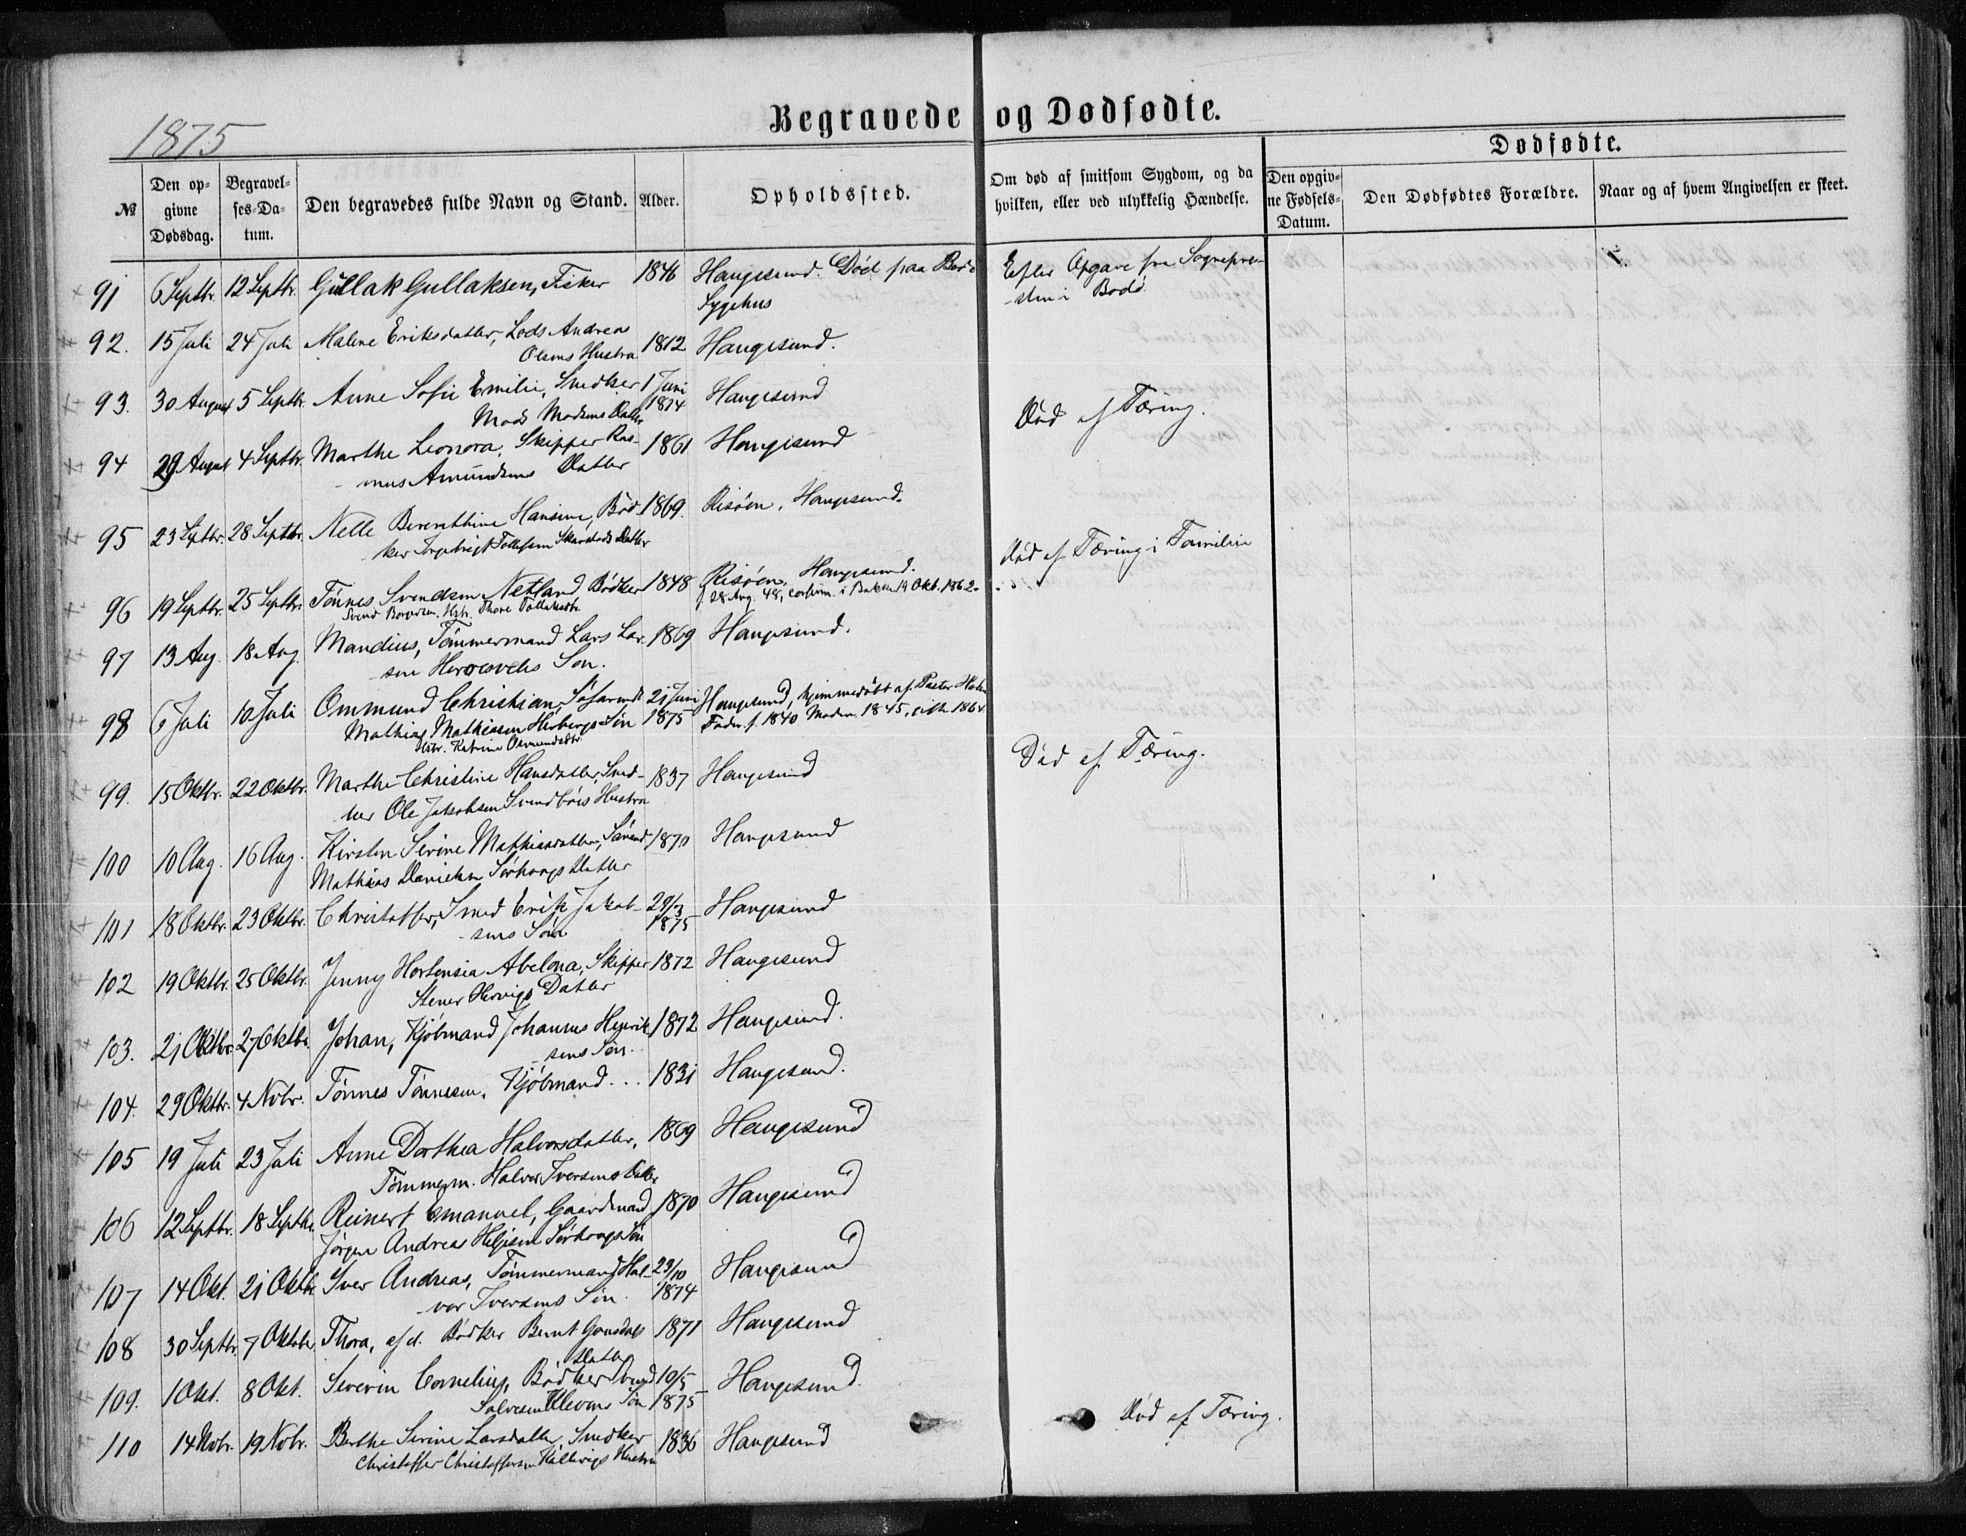 Begravede og Dødfødte.
1875
Dødfødte.
№
Den op-
givne
Dødsdag.
Begravel-
ses-Da-
tum.
Den begravedes fulde Navn og Stand.
Alder.
Opholdssted.
Om død af smitsom Sygdom, og da
hvilken, eller ved ulykkelig Hændelse.
Den opgiv-
ne Fødsels-
Datum.
Den Dødfødtes Forældre.
Naar og af hvem Angivelsen er skeet.
91 6 Septbr. 12 Septbr. Gullak Gullaksen, Fisker 1846 Haugesund. Død paa Bodø Efter Opgave fra Sognepre-
Sygehus -sten i Bodø
92. 15 Juli 24 Juli Malene Eriksdatter, Lods Andreas
Olsens Hustru 1812 Haugesund.
93. 30 August 5 Septbr. Anne Sofie Emilie, Snedker 1 Juni Haugesund
Mads Madsens Datter 1874 Død af Tæring.
94 29 August 4 Septbr. Marthe Leonora, Skipper Ras- 1861 Haugesund
mus Amundsens Datter
95 23 Septbr. 28 Septbr. Nelle Berenthine Hansine, Bød- 1869. Risøen, Haugesund.
ker Tollefsen Datter Død af Tæring i Familie
96 19 Septbr. 25 Septbr. Tønnes Svendsen Netland, Bødker 1848 Risøen, Haugesund.
f. 28 Aug. 48, confirm. i Bakke 19 Okt. 1862.
Svend Hstr. Thore Tollaksdtr.
97 13 Aug. 18 Aug. Mandius, Tømmermand Lars Lar- 1869 Haugesund.
sen Søn.
98 6 Juli 10 Juli Ommund Christian, Søfarende 21 Juni Haugesund, hjemmedøbt af Pastor
Mathias Mathiasen Søn 1875 Fader f. 1840 Moder 1845, gift 1864
Hstr. Katrine Ommundsdtr.
Død af Tæring.
99. 15 Oktbr. 22 Oktbr. Marthe Christine Hansdatter, Sned- 1837 Haugesund
ker Ole Jakobsen Svendbøes Hustru
100 10 Aug. 16 Aug. Kirsten Serine Mathiasdatter, 1870 Haugesund
Mathias Danielsen Sørhaugs Datter
101 18 Oktbr. 23 Oktbr. Christoffer, Smed Erik Jakob- 29/3 Haugesund
sens Søn 1875
102 19 Oktbr. 25 Oktbr. Jenny Hortensia Abelona, Skipper 1872 Haugesund
Stener Hervigs Datter
103. 21 Oktbr. 27 Oktbr. Johan, Kjøbmand Johannes Henrik- 1872 Haugesund.
sens Søn.
104. 29 Oktbr. 4 Novbr. Tønnes Tønnesen, Kjøbmand... 1831 Haugesund.
105 19 Juli 23 Juli Anne Dorthea Halvorsdatter, 1869 Haugesund
Tømmerm. Halvor Iversens Datter
106 12 Septbr. 18 Septbr. Reinert Emanuel, Gaardmand 1870 Haugesund
Jørgen Andreas Helgesen Sørhaugs Søn
107 14 Okt. 21 Oktbr. Iver Andreas, Tømmermand Hal- 23/10 Haugesund
vor Iversens Søn. 1874
108 30 Septbr. 7 Oktober Thora, af d. Bødker Bernt Gonsdals 1871 Haugesund
Datter
109. 1 Okt. 8 Okt. Severin Cornelius, Bødker Svend 10/5 Haugesund.
Salvesen Klevens Søn 1875
Død af Tæring.
110 14 Novbr. 19 Novbr. Berthe Serine Larsdatter, Snedker 1836 Haugesund
Christoffer Christoffersen Hustru